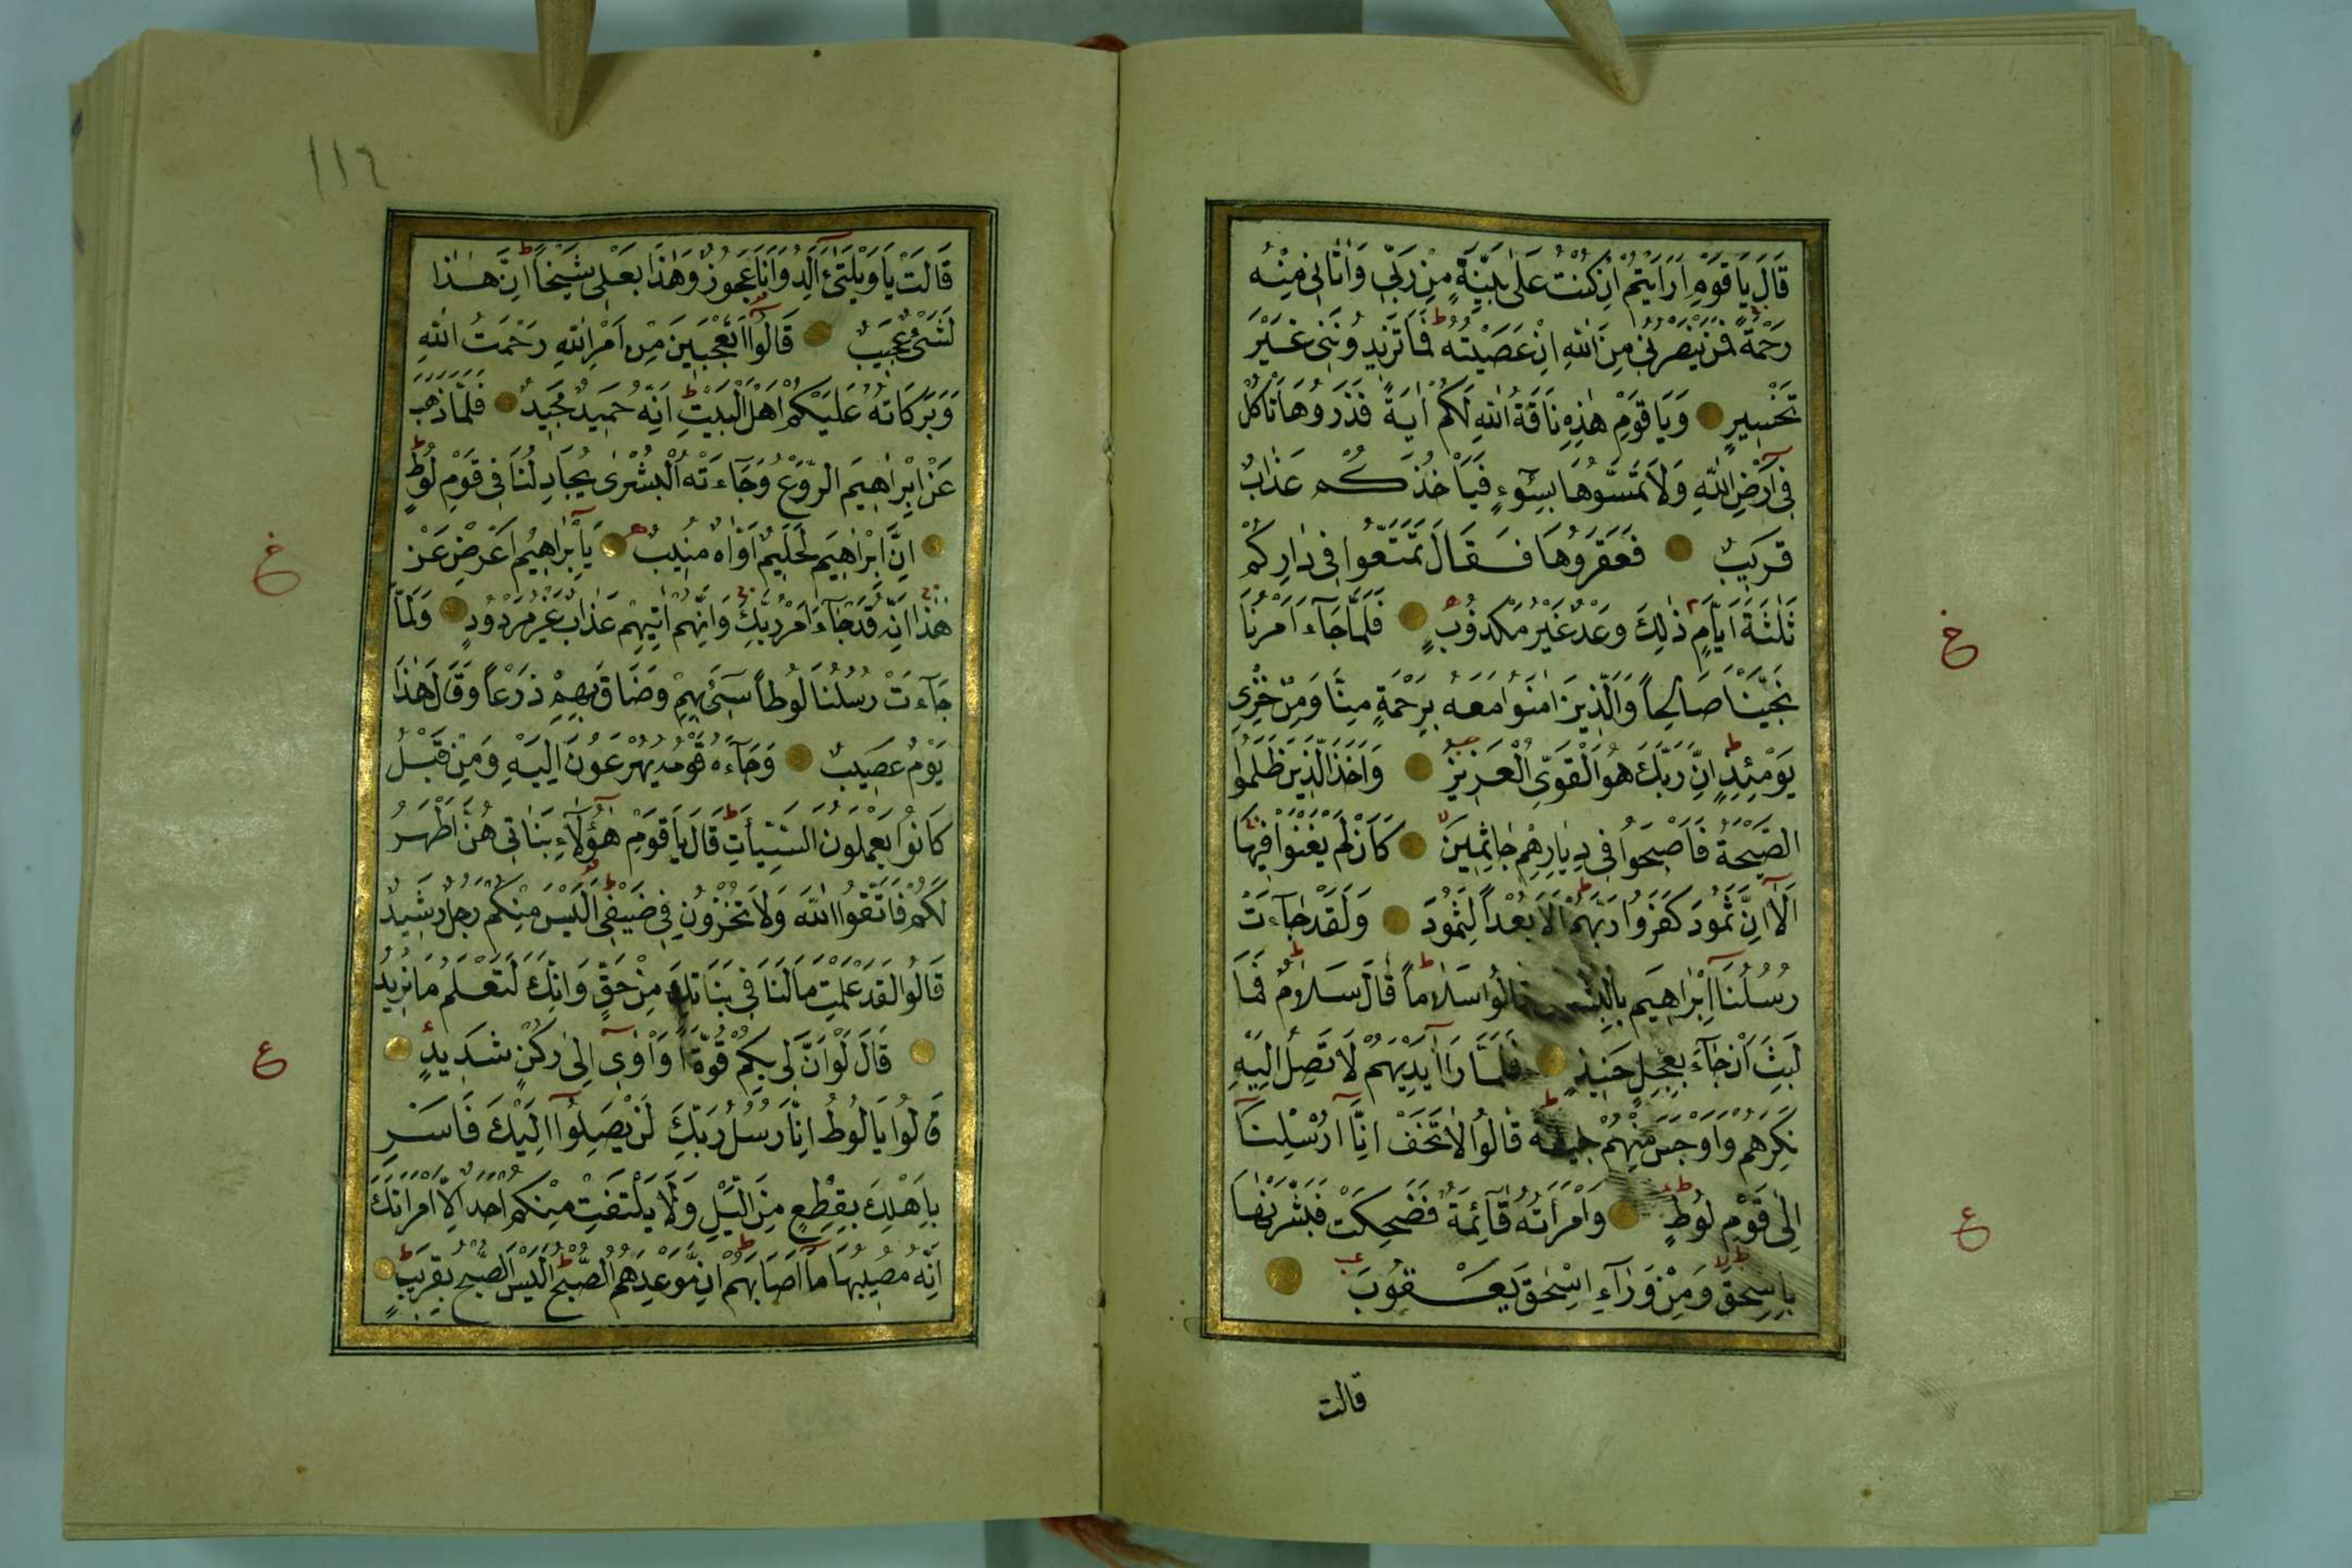 قَالَ يَا قَوْمِ اَرَاَيْتُمْ اِنْ كُنْتُ عَلٰى بَيِّنَةٍ مِنْ رَبّٖى وَاٰتَانٖى مِنْهُ
رَحْمَةً فَمَنْ يَنْصُرُنٖى مِنَ اللّٰهِ اِنْ عَصَيْتُهُ فَمَا تَزٖيدُونَنٖى غَيْرَ
تَخْسٖيرٍ وَيَا قَوْمِ هٰذِهِ نَاقَةُ اللّٰهِ لَكُمْ اٰيَةً فَذَرُوهَا تَاْكُلْ
فٖى اَرْضِ اللّٰهِ وَلَا تَمَسُّوهَا بِسُوٓءٍ فَيَاْخُذَكُمْ عَذَابٌ
قَرٖيبٌ فَعَقَرُوهَا فَقَالَ تَمَتَّعُوا فٖى دَارِكُمْ
ثَلٰثَةَ اَيَّامٍ ذٰلِكَ وَعْدٌ غَيْرُ مَكْذُوبٍ فَلَمَّا جَآءَ اَمْرُنَا
نَجَّيْنَا صَالِحاً وَالَّذٖينَ اٰمَنُوا مَعَهُ بِرَحْمَةٍ مِنَّا وَمِنْ خِزْىِ
يَوْمِئِذٍ اِنَّ رَبَّكَ هُوَ الْقَوِىُّ الْعَزٖيزُ وَاَخَذَ الَّذٖينَ ظَلَمُوا
الصَّيْحَةُ فَاَصْبَحُوا فٖى دِيَارِهِمْ جَاثِمٖينَ كَاَنْ لَمْ يَغْنَوْا فٖيهَا
اَلَآ اِنَّ ثَمُودَ كَفَرُوا رَبَّهُمْ اَلَا بُعْداً لِثَمُودَ وَلَقَدْ جَآءَتْ
رُسُلُنَآ اِبْرٰهٖيمَ قَالُوا سَلَاماً قَالَ سَلَامٌ فَمَا
لَبِثَ اَنْ جَآءَ بِعِجْلٍ حَنٖيذٍ فَلَمَّا رَاٰ اَيْدِيَهُمْ لَا تَصِلُ اِلَيْهِ
نَكِرَهُمْ وَاَوْجَسَ مِنْهُمْ خٖيفَةً قَالُوا لَا تَخَفْ اِنَّآ اُرْسِلْنَآ
اِلٰى قَوْمِ لُوطٍ وَامْرَاَتُهُ قَآئِمَةٌ فَضَحِكَتْ فَبَشَّرْنَاهَا
بِاِسْحٰقَ وَمِنْ وَرَآءِ اِسْحٰقَ يَعْقُوبَ
قالت
١١٤
قَالَتْ يَا وَيْلَتٰىٓ ءَاَلِدُ وَاَنَا عَجُوزٌ وَهٰذَا بَعْلٖى شَيْخاً اِنَّ هٰذَا
لَشَىْءٌ عَجٖيبٌ قَالُوٓا اَتَعْجَبٖينَ مِنْ اَمْرِ اللّٰهِ رَحْمَتُ اللّٰهِ
وَبَرَكَاتُهُ عَلَيْكُمْ اَهْلَ الْبَيْتِ اِنَّهُ حَمٖيدٌ مَجٖيدٌ فَلَمَّا ذَهَبَ
عَنْ اِبْرٰهٖيمَ الرَّوْعُ وَجَآءَتْهُ الْبُشْرٰى يُجَادِلُنَا فٖى قَوْمِ لُوطٍ
اِنَّ اِبْرٰهٖيمَ لَحَلٖيمٌ اَوَّاهٌ مُنٖيبٌ يَآ اِبْرٰهٖيمُ اَعْرِضْ عَنْ
هٰذَا اِنَّهُ قَدْ جَآءَ اَمْرُ رَبِّكَ وَاِنَّهُمْ اٰتٖيهِمْ عَذَابٌ غَيْرُ مَرْدُودٍ وَلَمَّا
جَآءَتْ رُسُلُنَا لُوطاً سٖٓىءَ بِهِمْ وَضَاقَ بِهِمْ ذَرْعاً وَقَالَ هٰذَا
يَوْمٌ عَصٖيبٌ وَجَآءَهُ قَوْمُهُ يُهْرَعُونَ اِلَيْهِ وَمِنْ قَبْلُ
كَانُوا يَعْمَلُونَ السَّيِّـَٔاتِ قَالَ يَا قَوْمِ هٰٓؤُلَآءِ بَنَاتٖى هُنَّ اَطْهَرُ
لَكُمْ فَاتَّقُوا اللّٰهَ وَلَا تُخْزُونِ فٖى ضَيْفٖى اَلَيْسَ مِنْكُمْ رَجُلٌ رَشٖيدٌ
قَالُوا لَقَدْ عَلِمْتَ مَا لَنَا فٖى بَنَاتِكَ مِنْ حَقٍّ وَاِنَّكَ لَتَعْلَمُ مَا نُرٖيدُ
قَالَ لَوْ اَنَّ لٖى بِكُمْ قُوَّةً اَوْ اٰوٖٓى اِلٰى رُكْنٍ شَدٖيدٍ
قَالُوا يَا لُوطُ اِنَّا رُسُلُ رَبِّكَ لَنْ يَصِلُوٓا اِلَيْكَ فَاَسْرِ
بِاَهْلِكَ بِقِطْعٍ مِنَ الَّيْلِ وَلَا يَلْتَفِتْ مِنْكُمْ اَحَدٌ اِلَّا امْرَاَتَكَ
اِنَّهُ مُصٖيبُهَا مَآ اَصَابَهُمْ اِنَّ مَوْعِدَهُمُ الصُّبْحُ اَلَيْسَ الصُّبْحُ بِقَرٖيبٍ
خ
ع
خ
ع